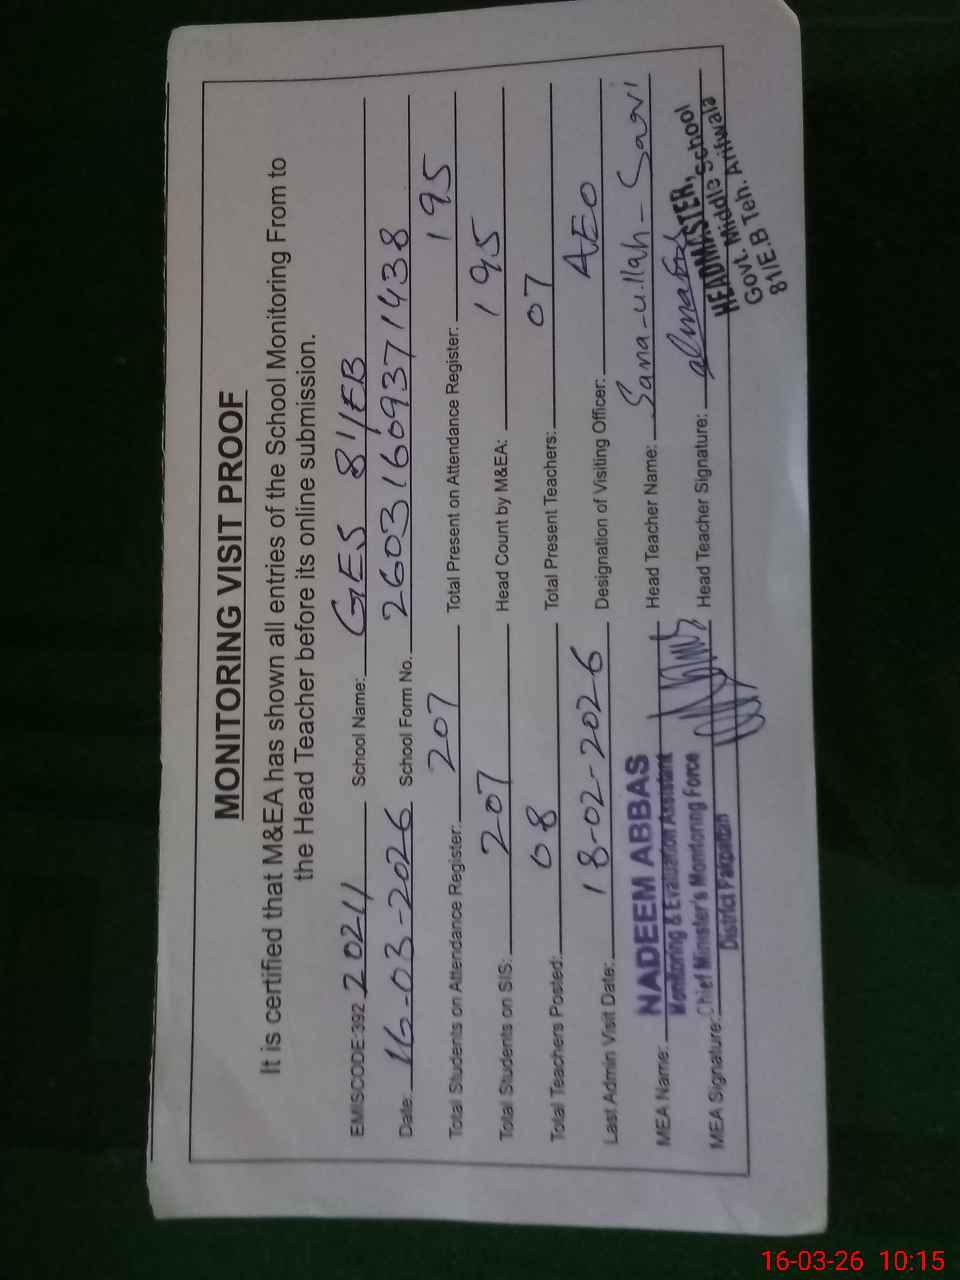 MONITORING VISIT PROOF
It is certified that M&EA has shown all entries of the School Monitoring From to
the Head Teacher before its online submission.
EMISCODE:392 20211 School Name: GES 81/EB
Date. 16-03-2026 School Form No. 26031609371438
Total Students on Attendance Register: 207 Total Present on Attendance Register: 195
Total Students on SIS: 207 Head Count by M&EA: 195
Total Teachers Posted: 08 Total Present Teachers: 07
Last Admin Visit Date: 18-02-2026 Designation of Visiting Officer: AEO
MEA Name: NADEEM ABBAS Head Teacher Name: Sana-ullah-
Monitoring & Evaluation Assistant
MEA Signature: Chief Minister's Monitoring Force Head Teacher Signature:
District Pakpattan
HEADMASTER,
Govt. Middle School
81/E.B Teh. Arifwala
16-03-26 10:15